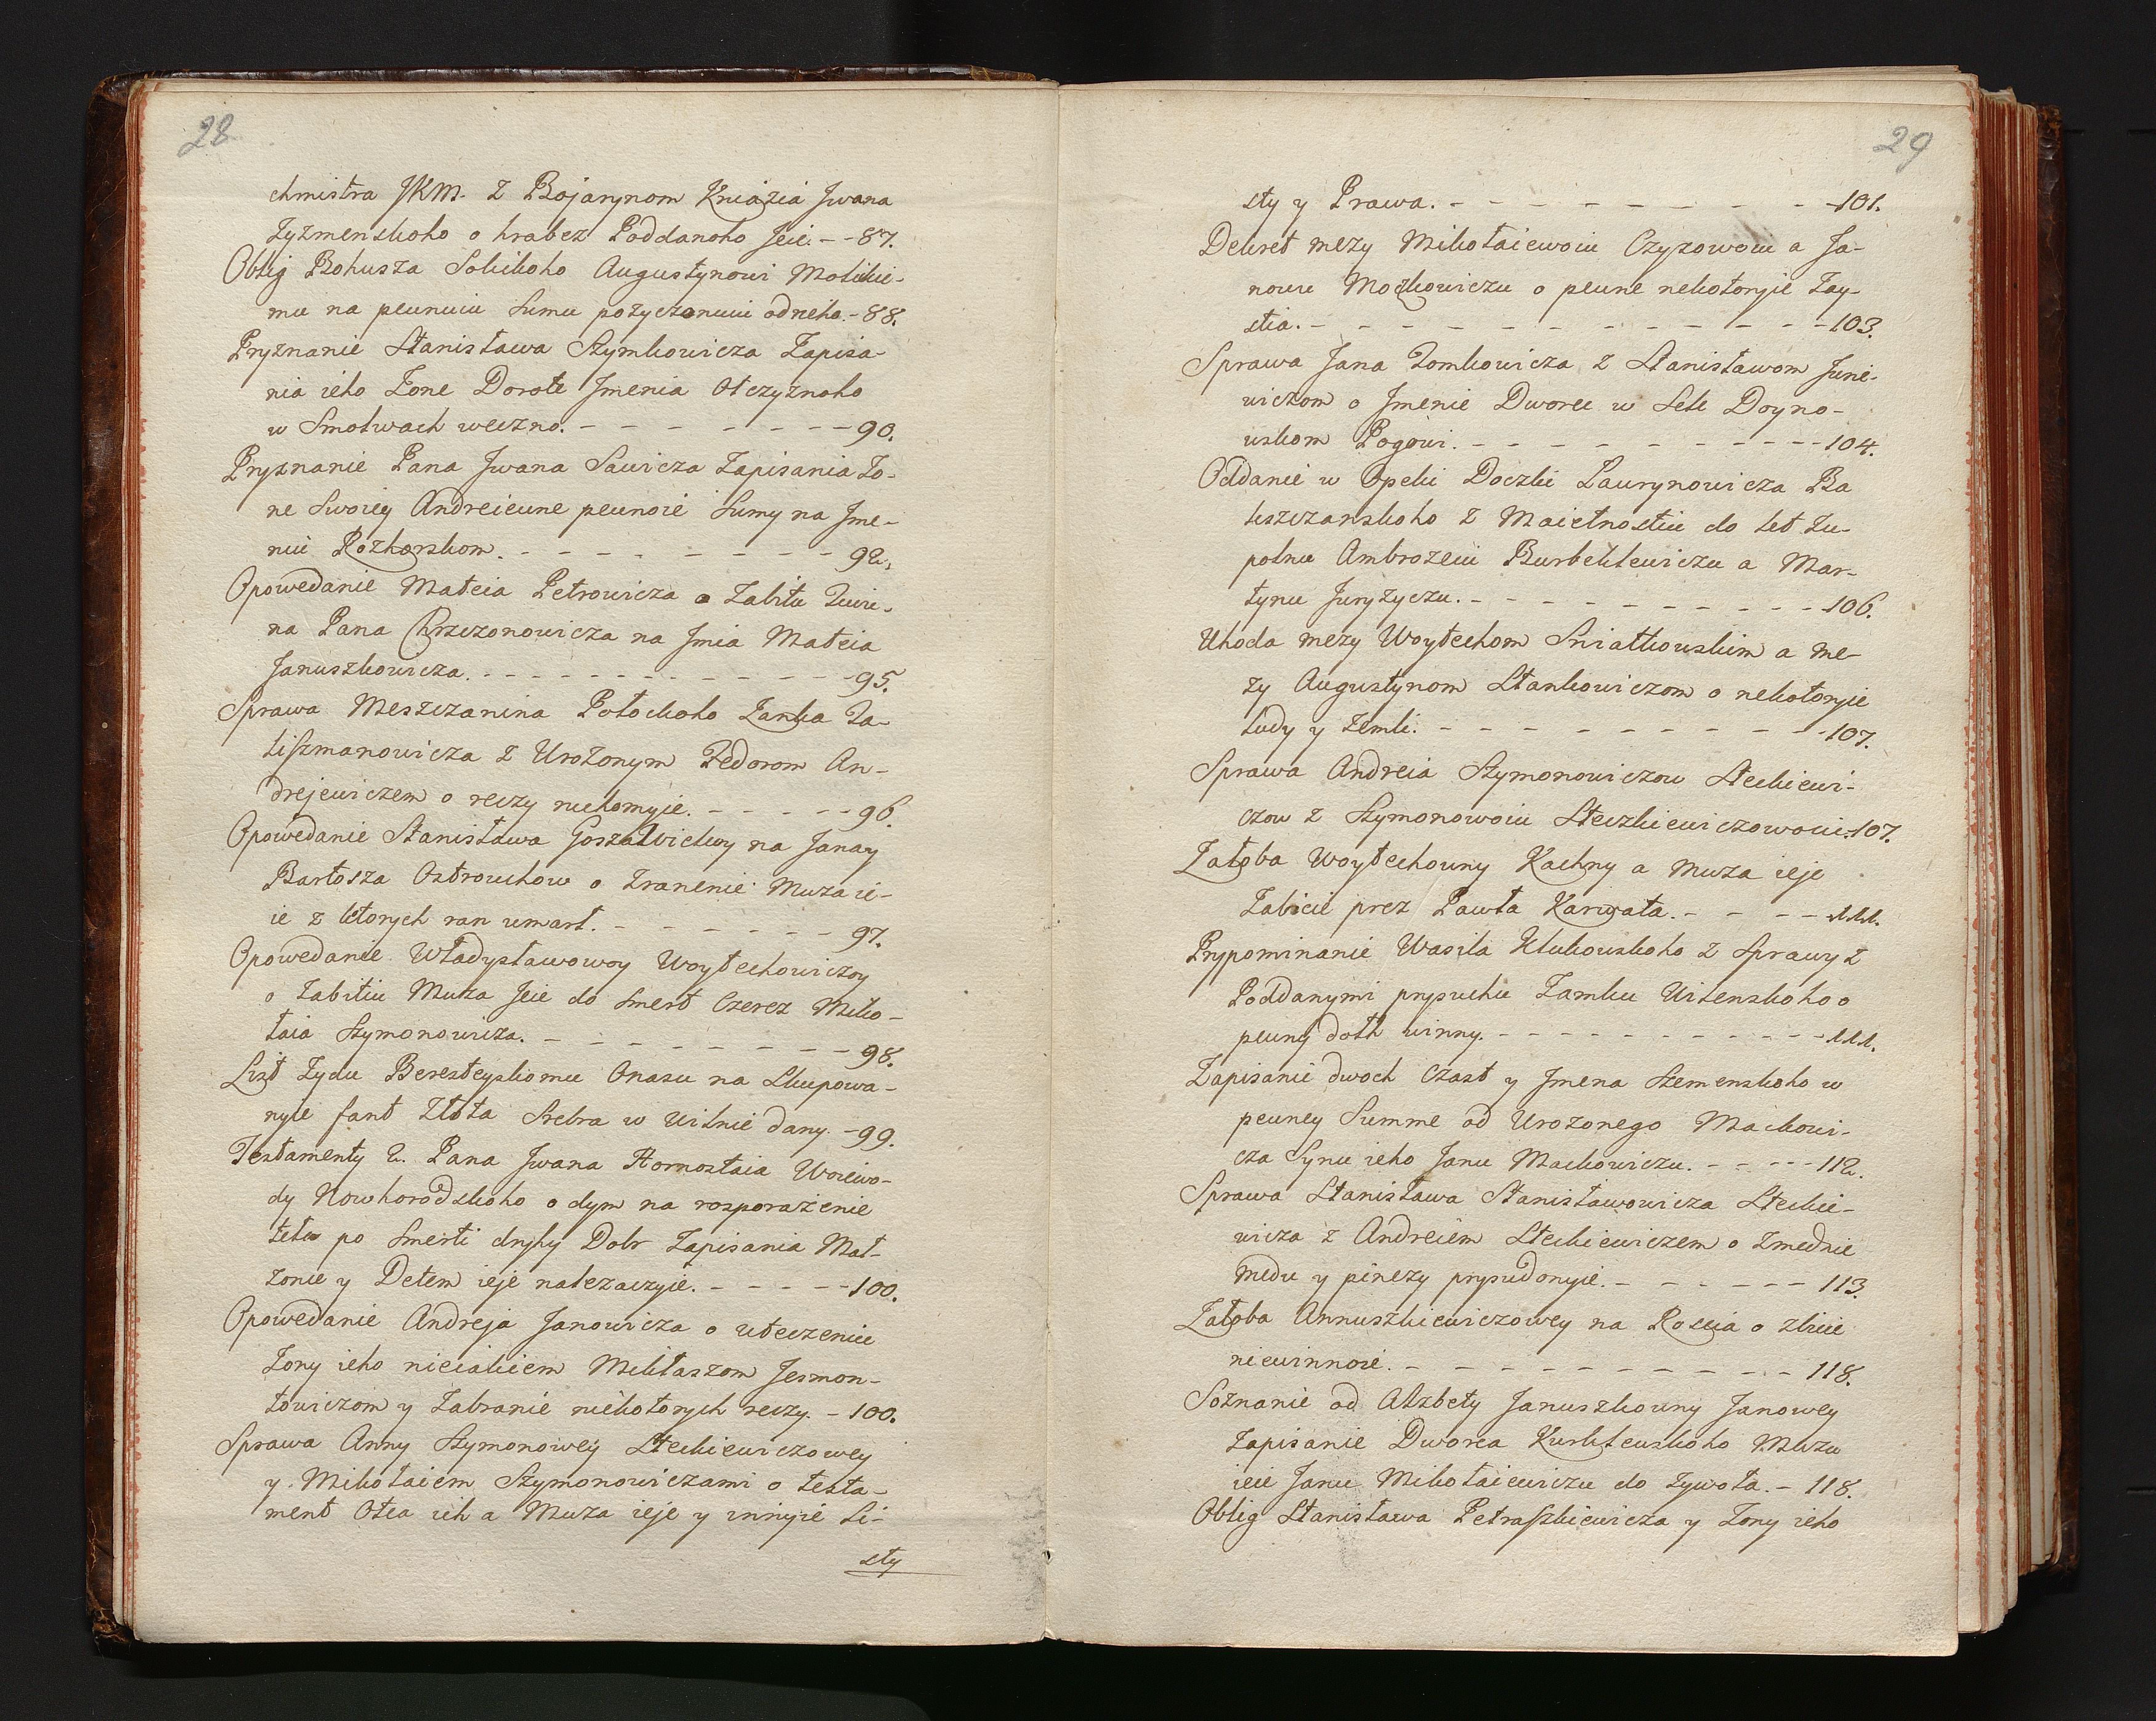 28
chmistra JKM. z Bojarynom Kniazia Jwana
Zyzmenskoho o hrabez Poddanoho Jeie. - - 87.
Oblig Bohusza Solickoho Augustynowi Molickie-
mu na pewnuiu Sumu pozyczonuiu od neho. - 88.
Pryznanie Stanisława Szymkowicza Zapisa-
nia ieho Zone Dorote Jmenia Otczyznoho
w Smolwach weczno. - - - - - - - - 90.
Pryznanie Pana Jwana Sawicza Zapisania Zo-
ne Swoiey Andreieune pewnoie Sumy na Jme-
niu Rozkorskom. - - - - - - - - - 92.
Opowedanie Mateia Petrowicza o Zabitu
na Pana Chrszczonowicza na Jmia Mateia
Januszkowicza. - - - - - - - - - - - 95.
Sprawa Meszczanina Połockoho Zanka Za-
liszmanowicza z Urożonym Fedorom An-
drejewiczem o reczy ruchomyie. - - - - - 96.
Opowedanie Stanisława Goszawickoy na Jana y
Bartosza Ostrowchow o Zranenie Muza ie-
ie z ktorych ran umart. - - - - - - - 97.
Opowedanie Władysławowoy Woytechowiczoy
o Zabitiu Muza Jeie do smert Czerez Miko-
łaia Szymonowicza. - - - - - - - - - 98.
List Zydu Beresteyskomu Onasu na Skupowa-
nyie fant Złota Srebra w Wilnie dany. - 99.
Testamenty 2. Pana Jwana Hornostaia Woiewo-
dy Nowhorodskoho o dym na rosporażenie
tełu po Smerti druhy Dobr Zapisania Mał-
zonie y Detem ieje nalezaczyie. - - - - - 100.
Opowedanie Andreja Janowicza o uteczeniu
Zony ieho nieiakiem Militaszom Jesmon-
towiczom y Zabranie niekotorych reczy. - 100.
Sprawa Anny Szymonowey Steckiewiczowey
y Mikołaiem Szymonowiczami o testa-
ment Otca ich a Muza ieje y innyie Li-
sty
29
sty y Prawa. - - - - - - - - - - 101.
Dekret mezy Mikołaiewoiu Czyzowoiu a Ja-
nowu Moczkowiczu o pewne nekotoryie Zay-
stia. - - - - - - - - - - - - - - 103.
Sprawa Jana Tomkowicza z Stanisławom June-
wiczom o Jmenie Dworec w Sele Doyno-
wskom Pogowi. - - - - - - - - - - - 104.
Oddanie w Opeki Doczki Laurynowicza Ba
kszczanskoho z Maietnostiu do let Zu-
połnu Ambrozeiu Burbekłewiczu a Mar-
tynu Juryzyczu. - - - - - - - - - - 106.
Uhoda mezy Woytechom Sniatkowskim a me-
zy Augustynom Stankowiczom o nekotoryie
ludy y Zemli. - - - - - - - - - - 107.
Sprawa Andreia Szymonowiczow Steckiewi-
czow z Szymonowoiu Steczkiewiczowoiu. 107.
Załoba Woytechowny Kachny a Muza ieje
Zabicie prez Pawła Karwata. - - - - 111.
Prypominanie Wasila Klukowskoho z Sprawy z
Poddanymi prysuchu Zamku Witenskoho o
pewny dołh winny. - - - - - - - - - - 111.
Zapisanie dwoch Czast y Jmena Szemenskoho w
pewney Summe od Urozonego Mackowi-
cza Synu ieho Janu Mackowiczu. - - - - 112.
Sprawa Stanisława Stanisławowicza Steckie-
wicza z Andreiem Steckiewiczem o Zmednie
Medu y pinezy prysudonyie. - - - - - - 113.
Załoba Annuszkiewiczowey na Roscia o zbicie
niewinnoie. - - - - - - - - - - 118.
Soznanie od Alzbety Januszkowny Janowey
Zapisanie Dworca Kurklewskoho Muzu
ieie Janu Mikołaiewiczu do zywota. - 118.
Oblig Stanisława Petraszkiewicza y Zony ieho